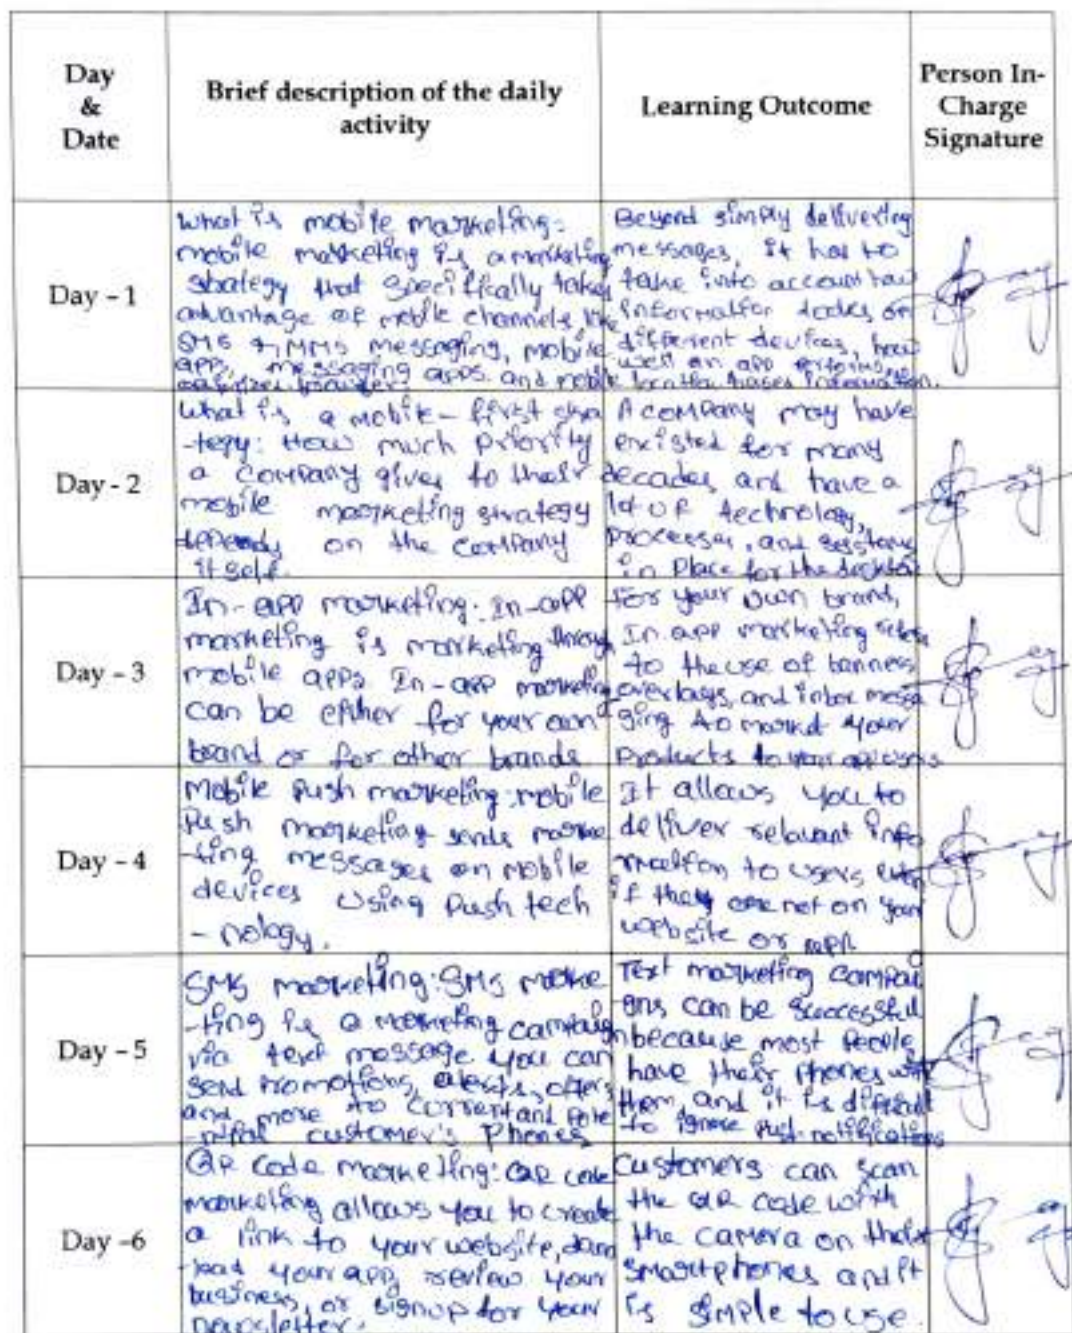 Day
&
Date
Brief description of the daily
activity
Learning Outcome
Person In-
Charge
Signature
Day - 1
What is mobile marketing:
mobile marketing is a marketing
strategy that specifically takes
advantage of mobile channels like
SMS & MMS messaging, mobile
app, messaging apps and mobile
browser.
Beyond simply delivering
messages, it has to
take into account how
information looks on
different devices, how
well an app performs
location bases information.
Day - 2
What is a mobile - first stra
-tegy: How much priority
a company gives to their
mobile marketing strategy
depends on the company
itself.
A company may have
existed for many
decades, and have a
lot of technology,
processes, and systems
in place for the desktop
Day - 3
In-app marketing: In-app
marketing is marketing through
mobile apps. In-app marketing
can be either for your own
brand or for other brands
for your own brand,
In app marketing refers
to the use of banners
overlays, and inbox messa
ging to market your
products to your app users
Day - 4
Mobile push marketing: mobile
Push marketing sends marke
-ting messages on mobile
devices using push tech
- nology.
It allows you to
deliver relavant info
rmation to users even
if they are not on your
website or app
Day - 5
SMS marketing: SMS marke
-ting is a marketing campaign
via text message you can
send promotions, alerts, offers
and more to current and pote
-ntial customer's phones
Text marketing campai
gns can be successful
because most people
have their phones with
them, and it is difficult
to ignore push notifications
Day -6
QR code marketing: QR code
marketing allows you to create
a link to your website, down
load your app, review your
business, or signup for your
newsletter.
Customers can scan
the QR code with
the camera on their
smartphones and it
is simple to use.